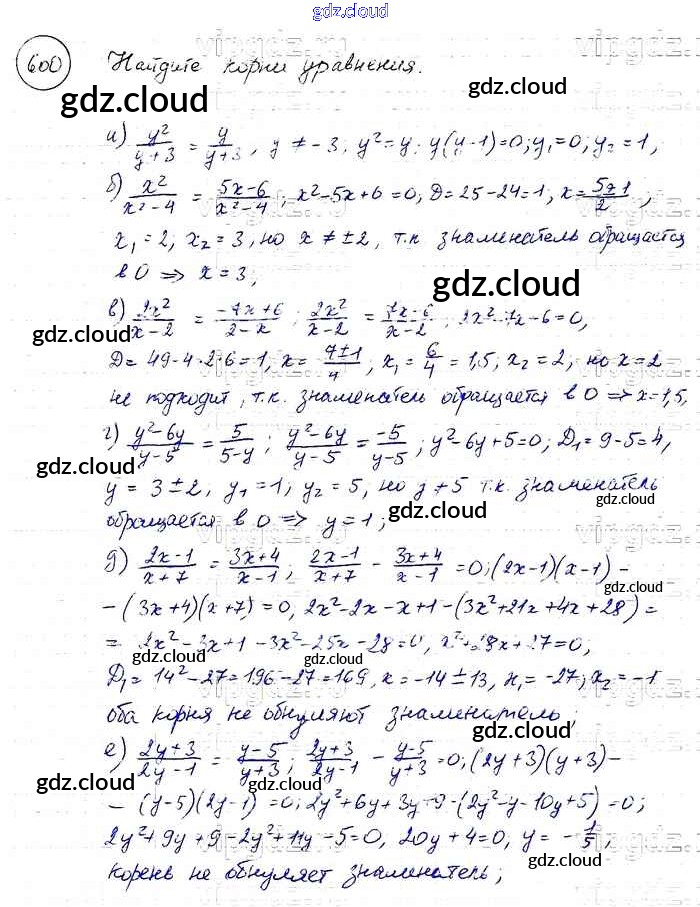 gdz.cloud
600 Найдите корни уравнения.
а) y²/(y+3) = y/(y+3), y ≠ -3; y² = y; y(y-1)=0; y₁=0; y₂=1,
б) x²/(x²-4) = (5x-6)/(x²-4); x²-5x+6=0, D=25-24=1, x=(5±1)/2;
x₁=2, x₂=3, но x≠±2, т.к знаменатель обращается
в 0 ⇒ x=3;
в) 2x²/(x-2) = (-7x+6)/(2-x); 2x²/(x-2) = (7x-6)/(x-2); 2x²-7x-6=0,
D=49-4·2·6=1, x=(7±1)/4, x₁=6/4=1,5, x₂=2, но x=2
не подходит, т.к. знаменатель обращается в 0 ⇒ x=1,5,
г) (y²-6y)/(y-5) = 5/(5-y); (y²-6y)/(y-5) = -5/(y-5); y²-6y+5=0; D₁=9-5=4,
y=3±2, y₁=1; y₂=5, но y≠5 т.к. знаменатель
обращается в 0 ⇒ y=1;
д) (2x-1)/(x+7) = (3x+4)/(x-1); (2x-1)/(x+7) - (3x+4)/(x-1) = 0; (2x-1)(x-1)-
-(3x+4)(x+7)=0, 2x²-2x-x+1-(3x²+21x+4x+28)=
= 2x²-3x+1-3x²-25x-28=0, x²+28x+27=0;
D₁=14²-27=196-27=169, x=-14±13, x₁=-27; x₂=-1
оба корня не обнуляют знаменатель;
е) (2y+3)/(2y-1) = (y-5)/(y+3); (2y+3)/(2y-1) - (y-5)/(y+3) = 0; (2y+3)(y+3)-
-(y-5)(2y-1)=0; 2y²+6y+3y+9-(2y²-y-10y+5)=0;
2y²+9y+9-2y²+11y-5=0, 20y+4=0, y=-1/5;
корень не обнуляет знаменатель;